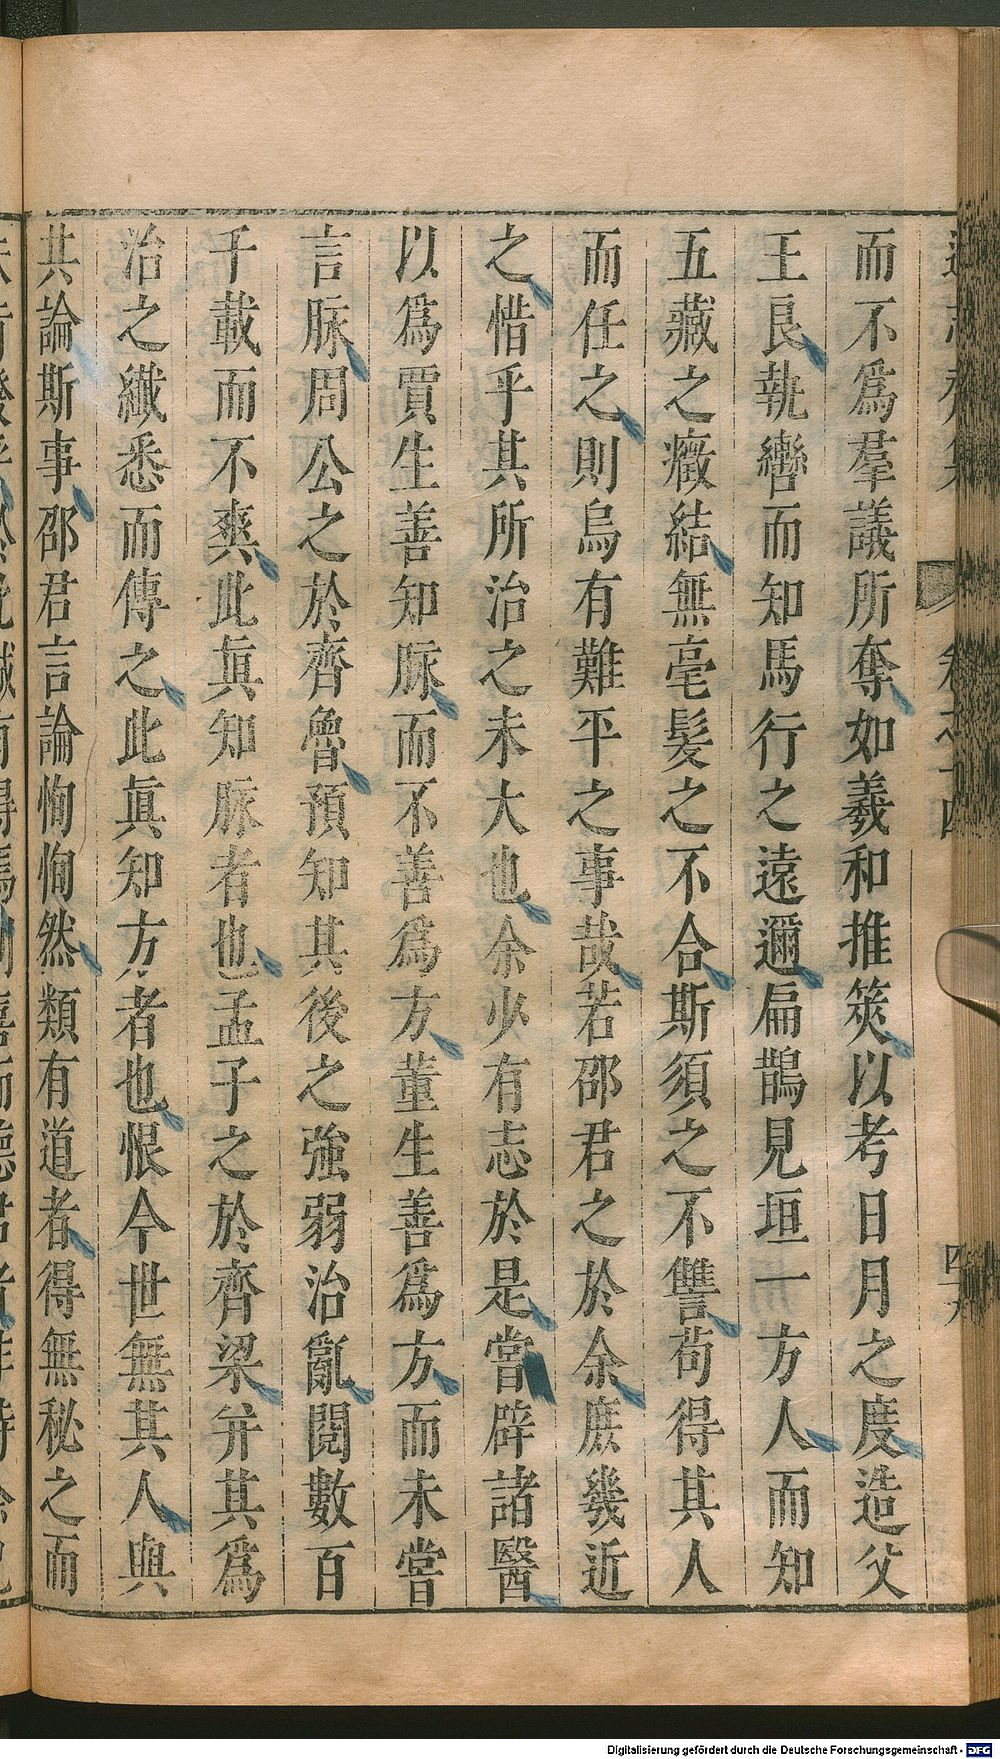 而不爲羣議所奪如羲和推筴以考日月之度造父
王良執轡而知馬行之遠邇扁鵲見垣一方人而知
五藏之癥結無毫髮之不合斯須之不讐苟得其人
而任之則烏有難平之事哉若邵君之於余庶幾近
之惜乎其所治之未大也余少有志於是嘗辟諸醫
以爲賈生善知脉而不善爲方董生善爲方而未嘗
言脉周公之於齊魯預知其後之強弱治亂閱數百
千載而不爽此眞知脉者也孟子之於齊梁并其爲
治之纖悉而傳之此眞知方者也恨今世無其人與
共論斯事邵君言論恂恂然類有道者得無秘之而
Digitalisierung gefördert durch die Deutsche Forschungsgemeinschaft - DFG